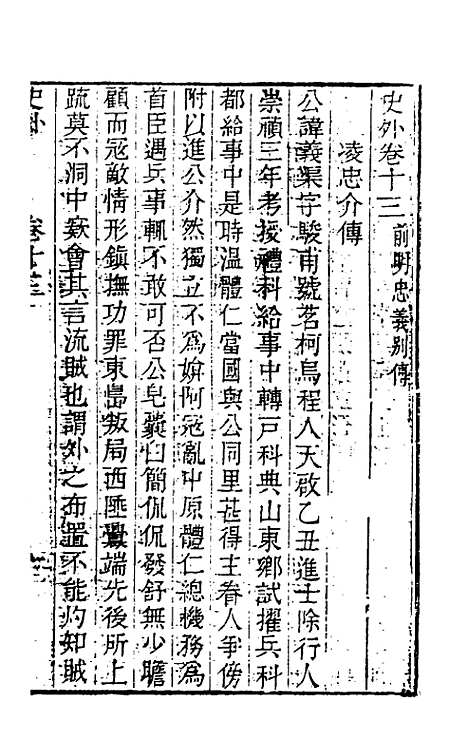 史外卷十三 前明忠義别傳
凌忠介傳
公諱義渠字駿甫號茗柯烏程人天啟乙丑進士除行人
崇禎三年考授禮科給事中轉戸科典山東鄉試擢兵科
都給事中是時温體仁當國與公同里甚得主眷人爭傍
附以進公介然獨立不爲媕阿冦亂中原體仁總機務爲
首臣遇兵事輒不敢可否公皂囊白簡侃侃發舒無少瞻
顧而冦敵情形鎮撫功罪東島叛局西匪釁端先後所上
疏莫不洞中窽會其言流賊也謂外之布置不能灼知賊
史外 卷十三